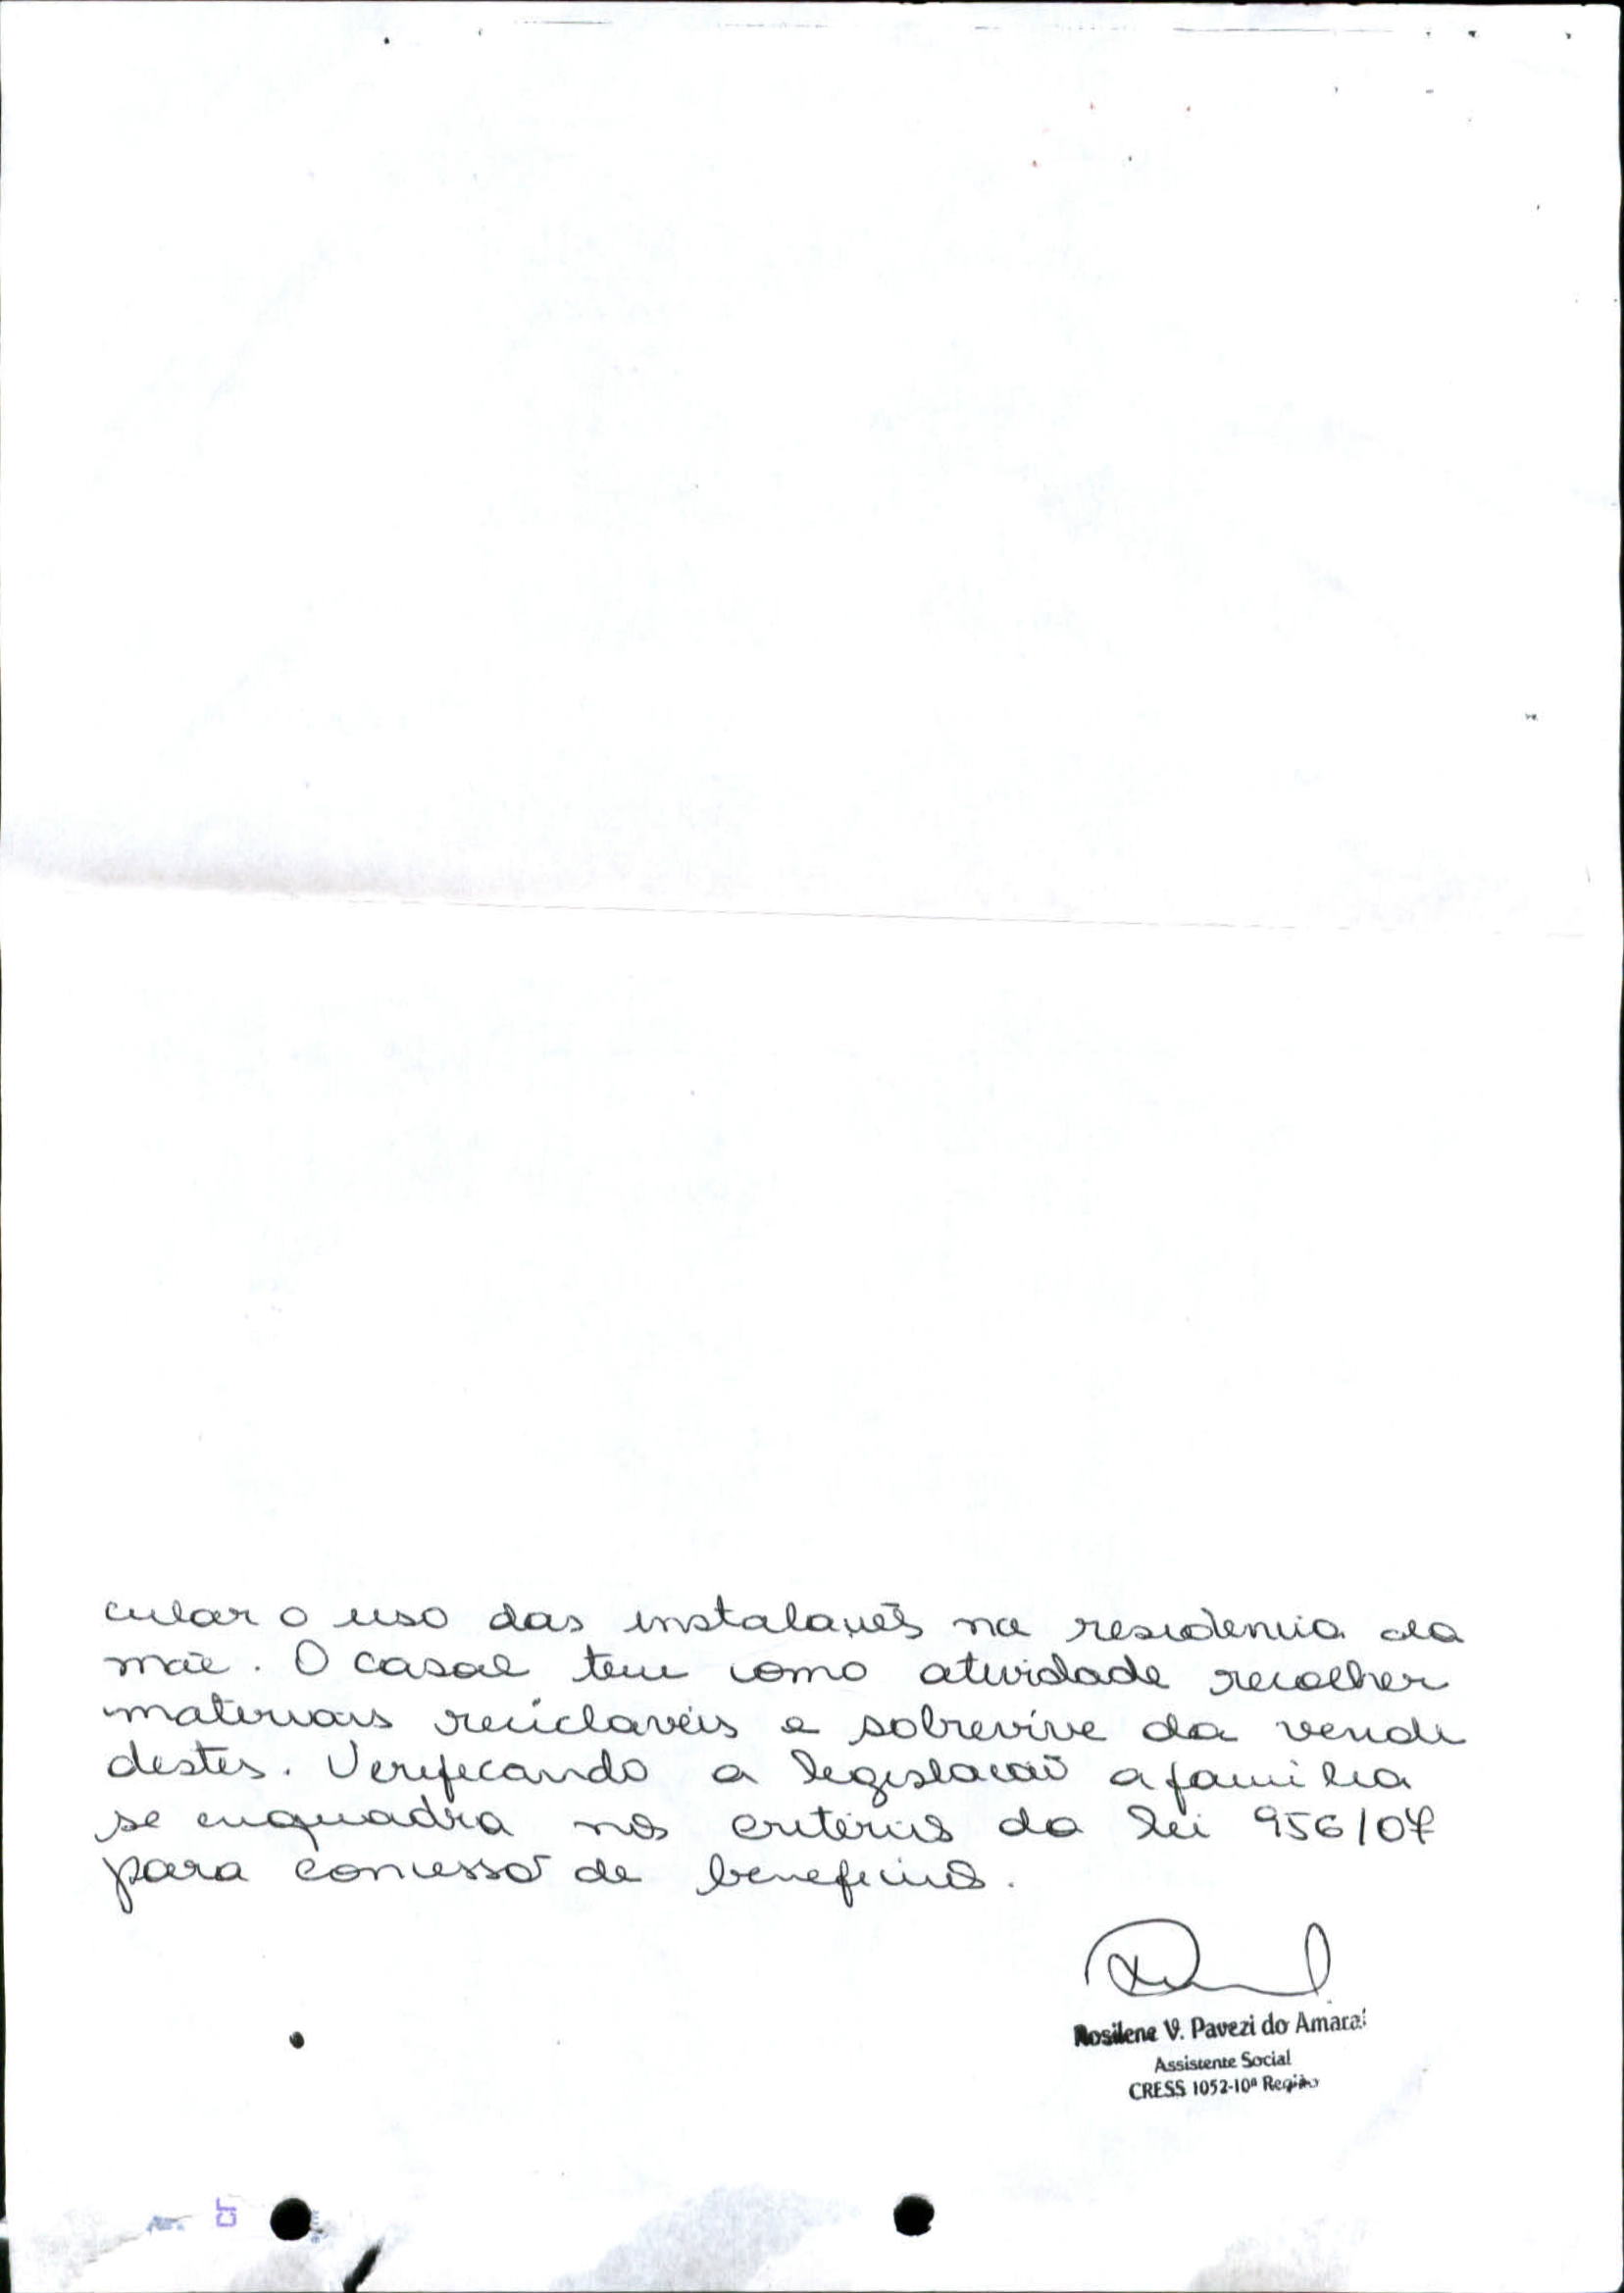 cular o uso das instalações na residencia da
mãe. O casal tem como atividade recolher
materiais reciclavéis e sobrevive da venda
destes. Verificando a legislação a familia
se enquadra nos criterios da lei 956/07
para concessão de beneficios.
Rosilene V. Pavezi do Amaral
Assistente Social
CRESS 1052-10ª Região